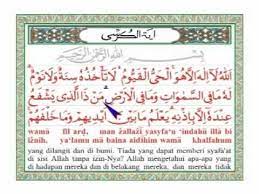 اية الكرسى
بسم الله الرحمن الرحيم
اَللهُ لَا إِلَهَ إِلَّا هُوَ الْحَيُّ الْقَيُّومُ لَا تَأْخُذُهُ سِنَةٌ وَلَا نَوْمٌ
لَهُ مَا فِي السَّمَوَاتِ وَمَا فِي الْأَرْضِ مَنْ ذَا الَّذِي يَشْفَعُ
عِنْدَهُ إِلَّا بِإِذْنِهِ يَعْلَمُ مَا بَيْنَ أَيْدِيهِمْ وَمَا خَلْفَهُمْ
wamā fil arḍ, man żallażī yasyfa'u 'indahū illā bi
iżnih, ya'lamu mā baina aidīhim wamā khalfahum
yang dilangit dan di bumi. Tiada yang dapat memberi syafa'at
di sisi Allah tanpa izin-Nya? Allah mengetahui apa-apa yang
di hadapan mereka dan di belakang mereka, dan mereka tidak